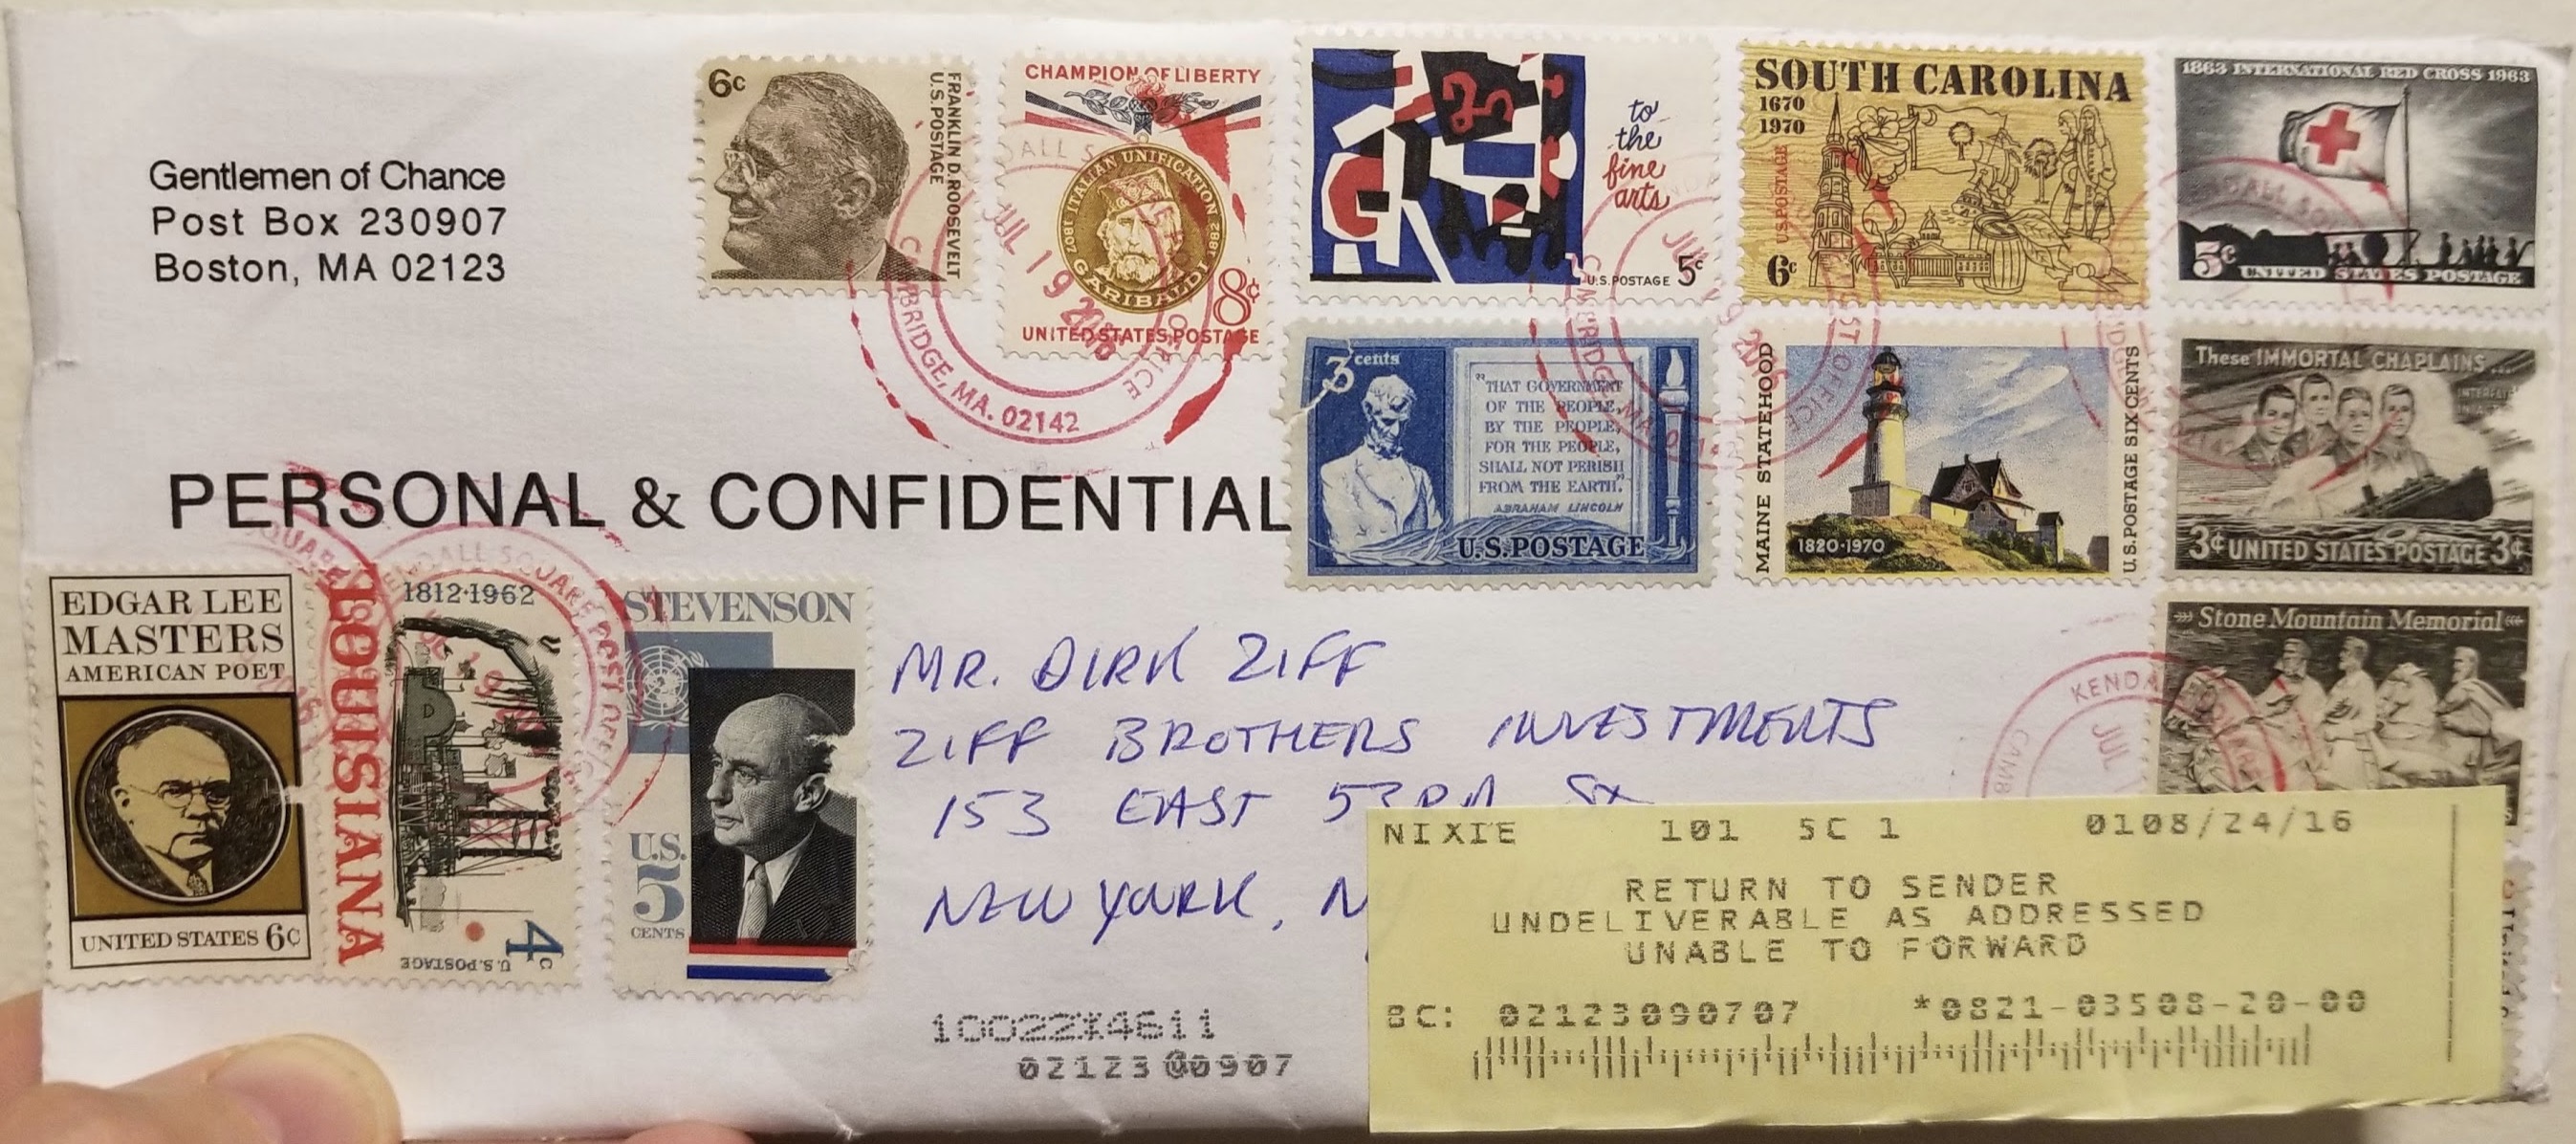 Gentlemen of Chance
Post Box 230907
Boston, MA 02123
6c
FRANKLIN D. ROOSEVELT
U.S. POSTAGE
CHAMPION OF LIBERTY
1807 ITALIAN UNIFICATION 1882
GARIBALDI
8¢
UNITED STATES POSTAGE
to
the
fine
arts
U.S. POSTAGE 5c
SOUTH CAROLINA
1670
1970
U.S. POSTAGE
6c
1863 INTERNATIONAL RED CROSS 1963
5c UNITED STATES POSTAGE
JUL 19 2016
CAMBRIDGE, MA. 02142
3 cents
"THAT GOVERNMENT
OF THE PEOPLE,
BY THE PEOPLE,
FOR THE PEOPLE,
SHALL NOT PERISH
FROM THE EARTH."
ABRAHAM LINCOLN
U.S. POSTAGE
MAINE STATEHOOD
1820-1970
U.S. POSTAGE SIX CENTS
These IMMORTAL CHAPLAINS...
3¢ UNITED STATES POSTAGE 3¢
PERSONAL & CONFIDENTIAL
Stone Mountain Memorial
EDGAR LEE
MASTERS
AMERICAN POET
UNITED STATES 6c
LOUISIANA
1812-1962
D
4c
U.S. POSTAGE
KENDALL SQUARE POST OFFICE
STEVENSON
U.S.
5
CENTS
MR. DIRK ZIFF
ZIFF BROTHERS INVESTMENTS
153 EAST 53RD ST
NEW YORK, N
NIXIE 101 5C 1 0108/24/16
RETURN TO SENDER
UNDELIVERABLE AS ADDRESSED
UNABLE TO FORWARD
BC: 02123090707 *0821-03508-20-00
10022*4611
02123@0907